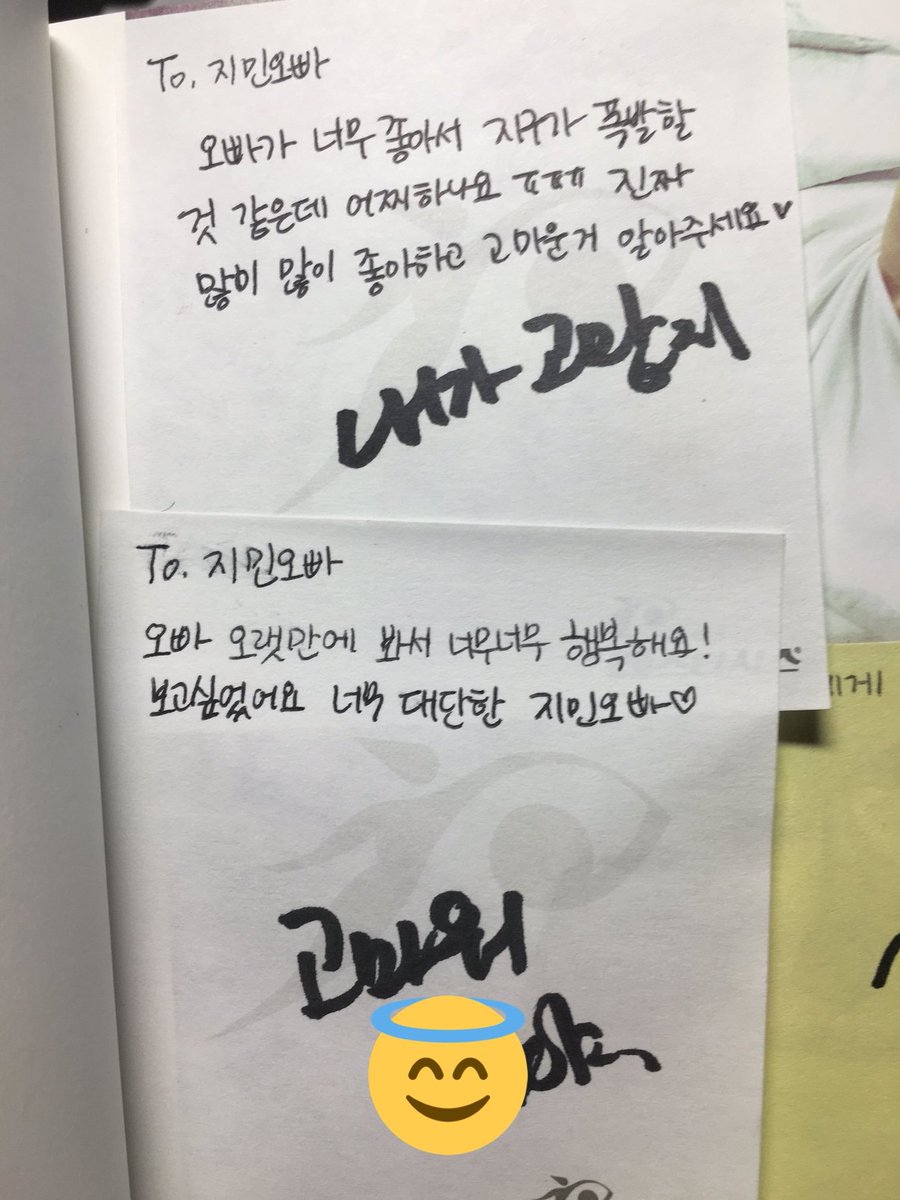 To. 지민오빠
오빠가 너무 좋아서 지구가 폭발할
것 같은데 어찌하나요 ㅠㅠㅠ 진짜
많이 많이 좋아하고 고마운거 알아주세요♥
내가 고맙지
To. 지민오빠
오빠 오랫만에 봐서 너무너무 행복해요!
보고싶었어요 너무 대단한 지민오빠♡
에게
고마워